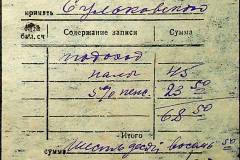 принять Сулковского
бал. сч Содержание записи Сумма
подоход
налог 45
5% пенс. 23 50
68 50
Итого
сумма шестьдесят восемь 50